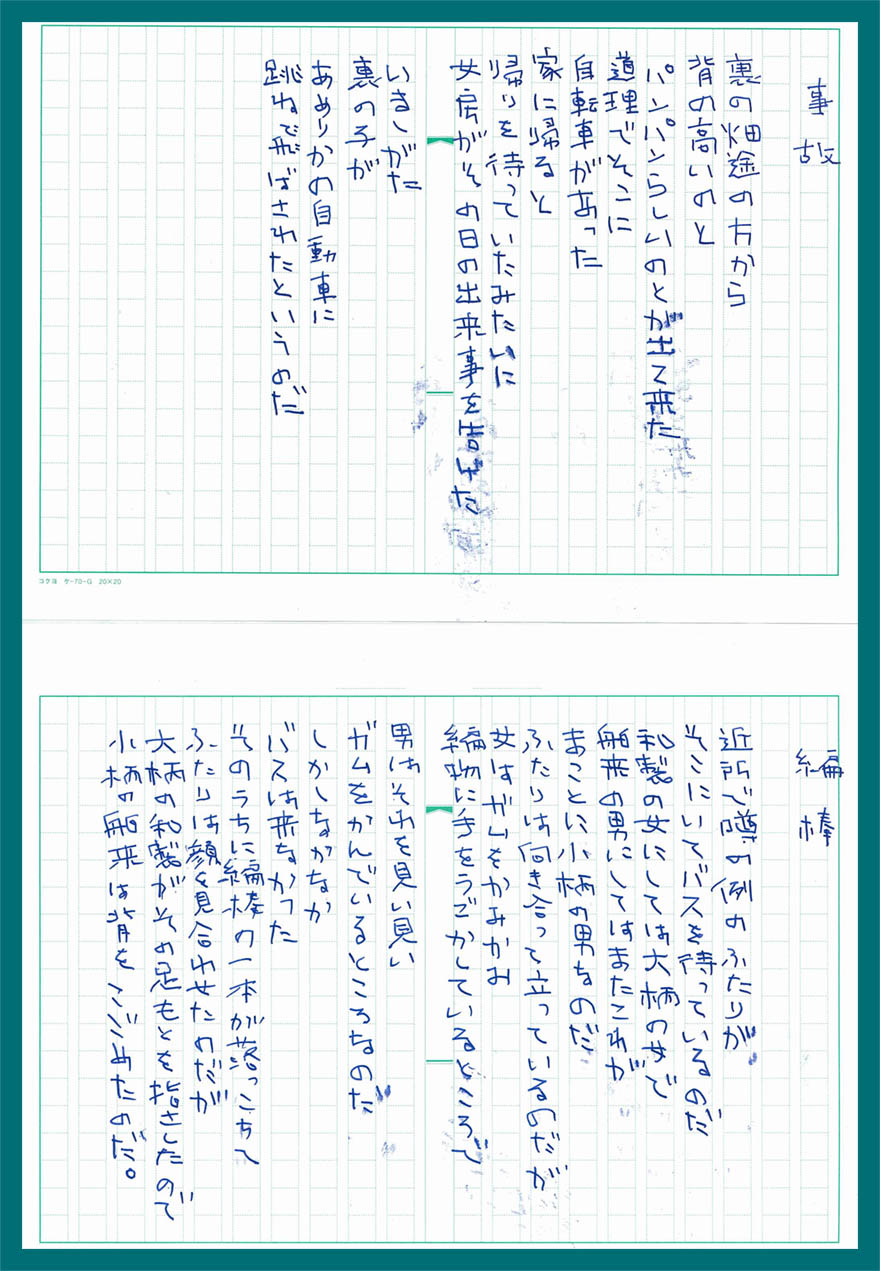 事故
裏の畑途の方から
背の高いのと
パンパンらしいのとが出て来た
道理でそこに
自転車があった
家に帰ると
帰りを待っていたみたいに
女房がその日の出来事を告げた
いきしがた
裏の子が
あめりかの自動車に
跳ねで飛ばされたというのだ
コクヨ ケ-70-G 20×20
編棒
近所で噂の例のふたりが
そこにいてバスを待っているのだ
和製の女にしては大柄の女で
舶来の男にしてはまたこれが
まことに小柄の男なのだ
ふたりは向き合って立っているのだが
女はガムをかみかみ
編物に手をうごかしているところで
男はそれを見い見い
ガムをかんでいるところなのだ
しかしなかなか
バスは来なかった
そのうちに編棒の一本が落っこちて
ふたりは顔を見合わせたのだが
大柄の和製がその足もとを指さしたので
小柄の舶来は背をこごめたのだ。